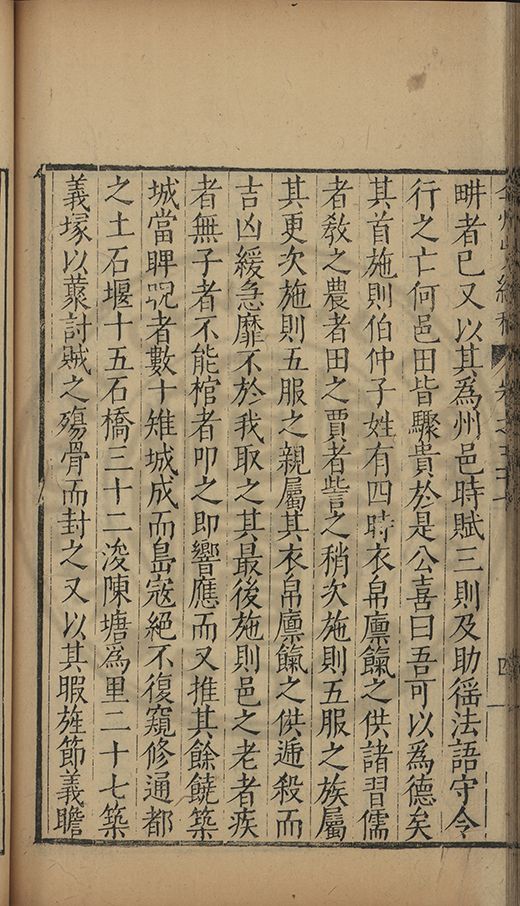 畊者已又以其為州邑時賦三則及助徭法語守令
行之亡何邑田皆驟貴於是公喜曰吾可以為德矣
其首施則伯仲子姓有四時衣帛廪餼之供諸習儒
者敎之農者田之賈者訾之稍次施則五服之族屬
其更次施則五服之親屬其衣帛廪餼之供遞殺而
吉凶緩急靡不於我取之其最後施則邑之老者疾
者無子者不能棺者叩之即響應而又推其餘饒築
城當睥睨者數十雉城成而島寇絕不復窺修通都
之土石堰十五石橋三十二浚陳塘為里二十七築
義塚以蘽討賊之殤骨而封之又以其暇旌節義贍